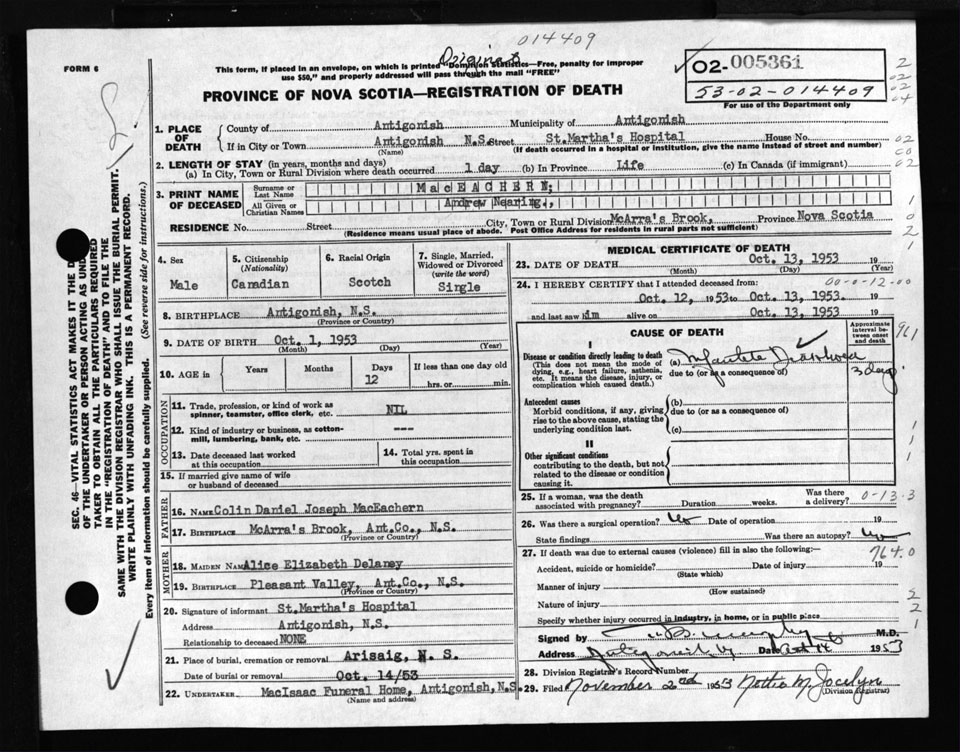 014409
Original
FORM 6
This form, if placed in an envelope, on which is printed "Dominion Statistics—Free, penalty for improper
use $50," and properly addressed will pass through the mail "FREE"
PROVINCE OF NOVA SCOTIA—REGISTRATION OF DEATH
02-005361
53-02-014409
For use of the Department only
2
02
02
04
1. PLACE OF DEATH County of Antigonish Municipality of Antigonish
If in City or Town Antigonish N.S. Street St.Martha's Hospital House No.
(Name) (If death occurred in a hospital or institution, give the name instead of street and number)
02
00
02
2. LENGTH OF STAY (in years, months and days)
(a) In City, Town or Rural Division where death occurred 1 day (b) In Province Life (c) In Canada (if immigrant)
3. PRINT NAME OF DECEASED Surname or Last Name MacEACHERN;
All Given or Christian Names Andrew Nearing.,
1
0
2
1
RESIDENCE No. Street City, Town or Rural Division McArra's Brook, Province Nova Scotia
(Residence means usual place of abode. Post Office Address for residents in rural parts not sufficient)
SEC. 46—VITAL STATISTICS ACT MAKES IT THE D
OF THE UNDERTAKER OR PERSON ACTING AS UND
TAKER TO OBTAIN ALL THE PARTICULARS REQUIRED
IN THE "REGISTRATION OF DEATH" AND TO FILE THE
SAME WITH THE DIVISION REGISTRAR WHO SHALL ISSUE THE BURIAL PERMIT.
WRITE PLAINLY WITH UNFADING INK. THIS IS A PERMANENT RECORD.
Every item of information should be carefully supplied. (See reverse side for instructions.)
4. Sex
Male
5. Citizenship
(Nationality)
Canadian
6. Racial Origin
Scotch
7. Single, Married,
Widowed or Divorced
(write the word)
Single
8. BIRTHPLACE Antigonish, N.S.
(Province or Country)
9. DATE OF BIRTH Oct. 1, 1953
(Month) (Day) (Year)
10. AGE in Years Months Days If less than one day old
12 hrs. or min.
OCCUPATION
11. Trade, profession, or kind of work as
spinner, teamster, office clerk, etc. NIL
12. Kind of industry or business, as cotton-
mill, lumbering, bank, etc. ---
13. Date deceased last worked
at this occupation
14. Total yrs. spent in
this occupation
15. If married give name of wife
or husband of deceased
FATHER
16. Name Colin Daniel Joseph MacEachern
17. Birthplace McArra's Brook, Ant.Co., N.S.
(Province or Country)
MOTHER
18. MAIDEN NAME Alice Elizabeth Delaney
19. Birthplace Pleasant Valley, Ant.Co., N.S.
(Province or Country)
20. Signature of informant St.Martha's Hospital
Address Antigonish, N.S.
Relationship to deceased NONE
21. Place of burial, cremation or removal Arisaig, N. S.
Date of burial or removal Oct. 14/53
22. UNDERTAKER MacIsaac Funeral Home, Antigonish, N.S.
(Name and address)
MEDICAL CERTIFICATE OF DEATH
23. DATE OF DEATH Oct. 13, 1953 19
(Month) (Day) (Year)
24. I HEREBY CERTIFY that I attended deceased from: 00-0-12-00
Oct. 12, 1953 to Oct. 13, 1953. 19
and last saw him alive on Oct. 13, 1953 19
CAUSE OF DEATH
Approximate interval between onset and death
961
I
Disease or condition directly leading to death
(This does not mean the mode of
dying, e.g., heart failure, asthenia,
etc. It means the disease, injury, or
complication which caused death.)
(a) Infantile Diarrhoea 3 days
due to (or as a consequence of)
Antecedent causes
Morbid conditions, if any, giving
rise to the above cause, stating the
underlying condition last.
(b)
due to (or as a consequence of)
(c)
II
Other significant conditions
contributing to the death, but not
related to the disease or condition
causing it.
1
1
1
25. If a woman, was the death
associated with pregnancy? Duration weeks. Was there a delivery?
0-13.3
26. Was there surgical operation? Date of operation 19
State findings Was there an autopsy?
764.0
27. If death was due to external causes (violence) fill in also the following:—
Accident, suicide or homicide? Date of injury 19
(State which)
Manner of injury
(How sustained)
Nature of injury
Specify whether injury occurred in industry, in home, or in public place
2
2
1
Signed by Murphy M.D.
Address Antigonish Date Oct 14 1953
28. Division Registrar's Record Number
29. Filed November 2nd 1953 Nettie M. Jocelyn
(Division Registrar)